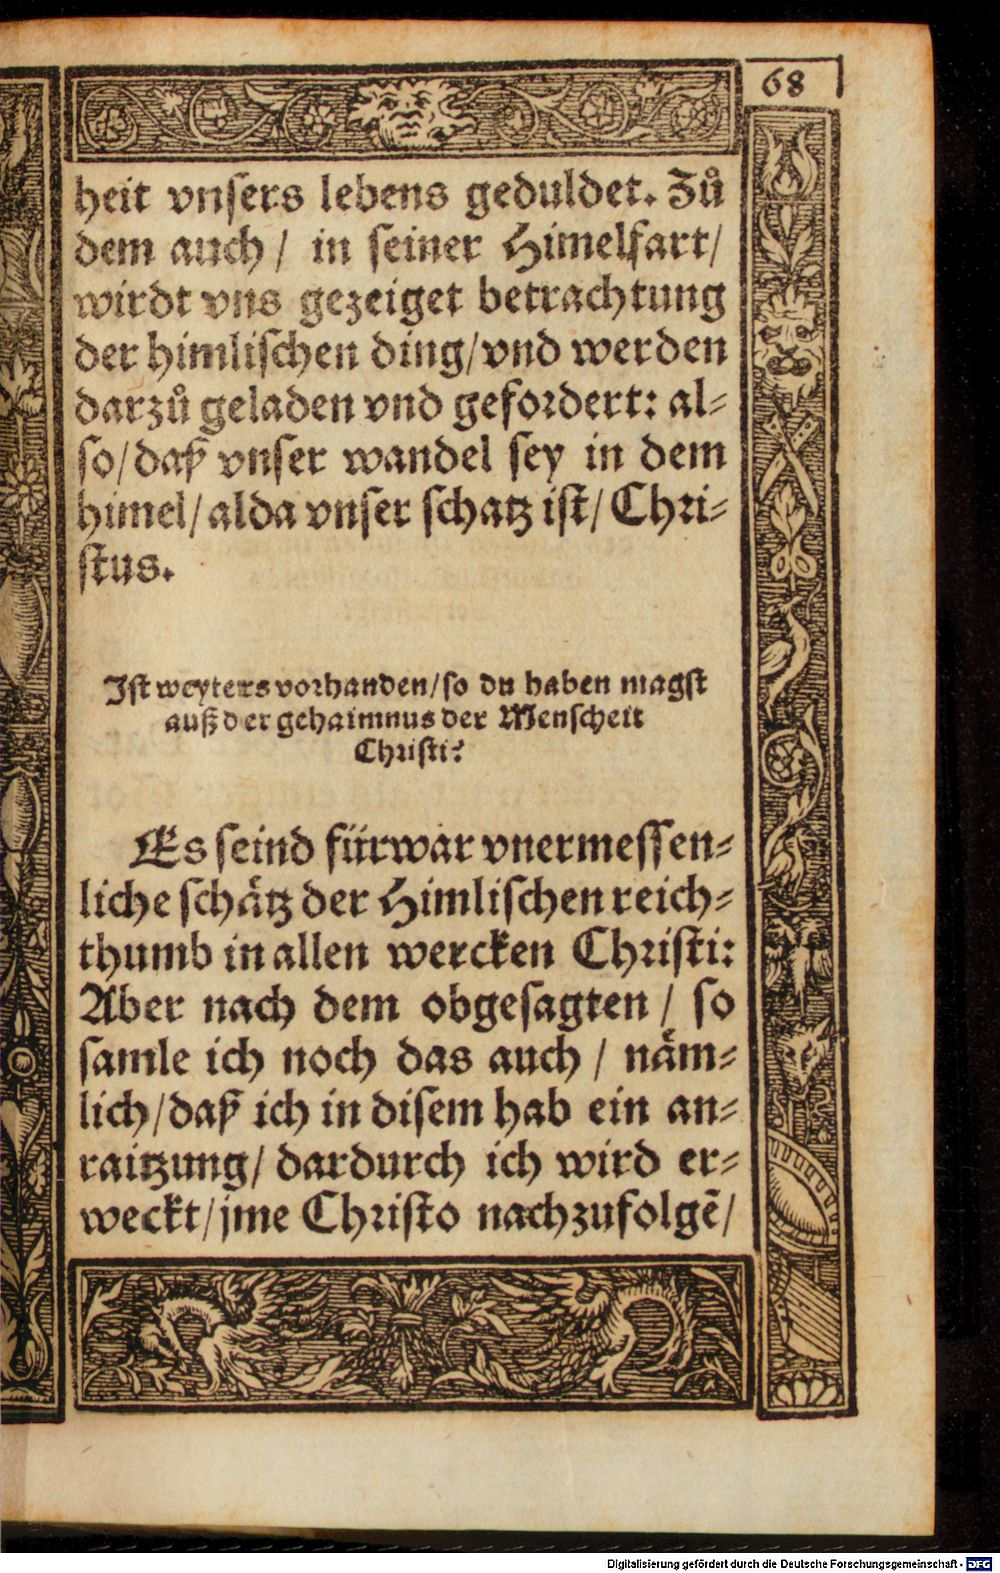 68
heit vnsers lebens geduldet. Zů
dem auch / in seiner Himelfart /
wirdt vns gezeiget betrachtung
der himlischen ding / vnd werden
darzů geladen vnd gefordert: al=
so / daß vnser wandel sey in dem
himel / alda vnser schatz ist / Chri=
stus.
Ist weyters vorhanden / so du haben magst
auß der gehaimnus der Menscheit
Christi?
Es seind fürwar vnermessen=
liche schätz der Himlischen reich=
thumb in allen wercken Christi:
Aber nach dem obgesagten / so
samle ich noch das auch / näm=
lich / daß ich in disem hab ein an=
raitzung / dardurch ich wird er=
weckt / jme Christo nachzufolgē /
Digitalisierung gefördert durch die Deutsche Forschungsgemeinschaft - DFG